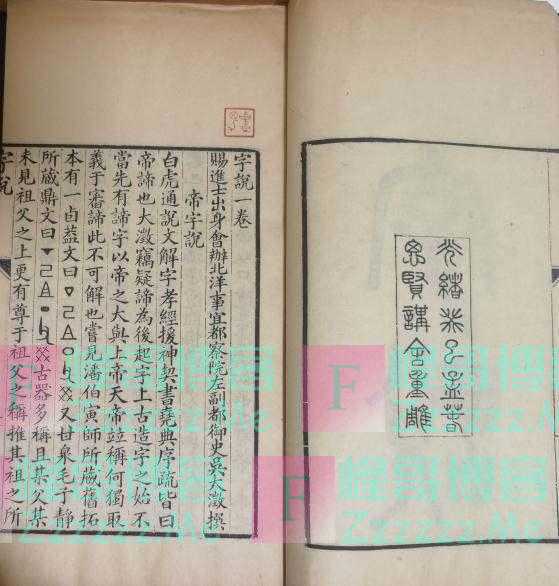 光緒癸巳孟春
思賢講舍重雕
字說一卷
賜進士出身會辦北洋事宜都察院左副都御史吳大澂撰
帝字說
白虎通說文解字孝經援神契書堯典序疏皆曰
帝諦也大澂竊疑諦為後起字上古造字之始不
當先有諦字以帝之大與上帝天帝竝稱何獨取
義于審諦此不可解也嘗見潘伯寅師所藏舊拓
本有一卣葢文曰▼己且丁父癸又甘泉毛子靜
所藏鼎文曰▼己且丁父癸古器多稱且某父某
未見祖父之上更有尊于祖父之稱推其祖之所
字說
F
Zzzzzz.Me
F
Zzzzzz.Me